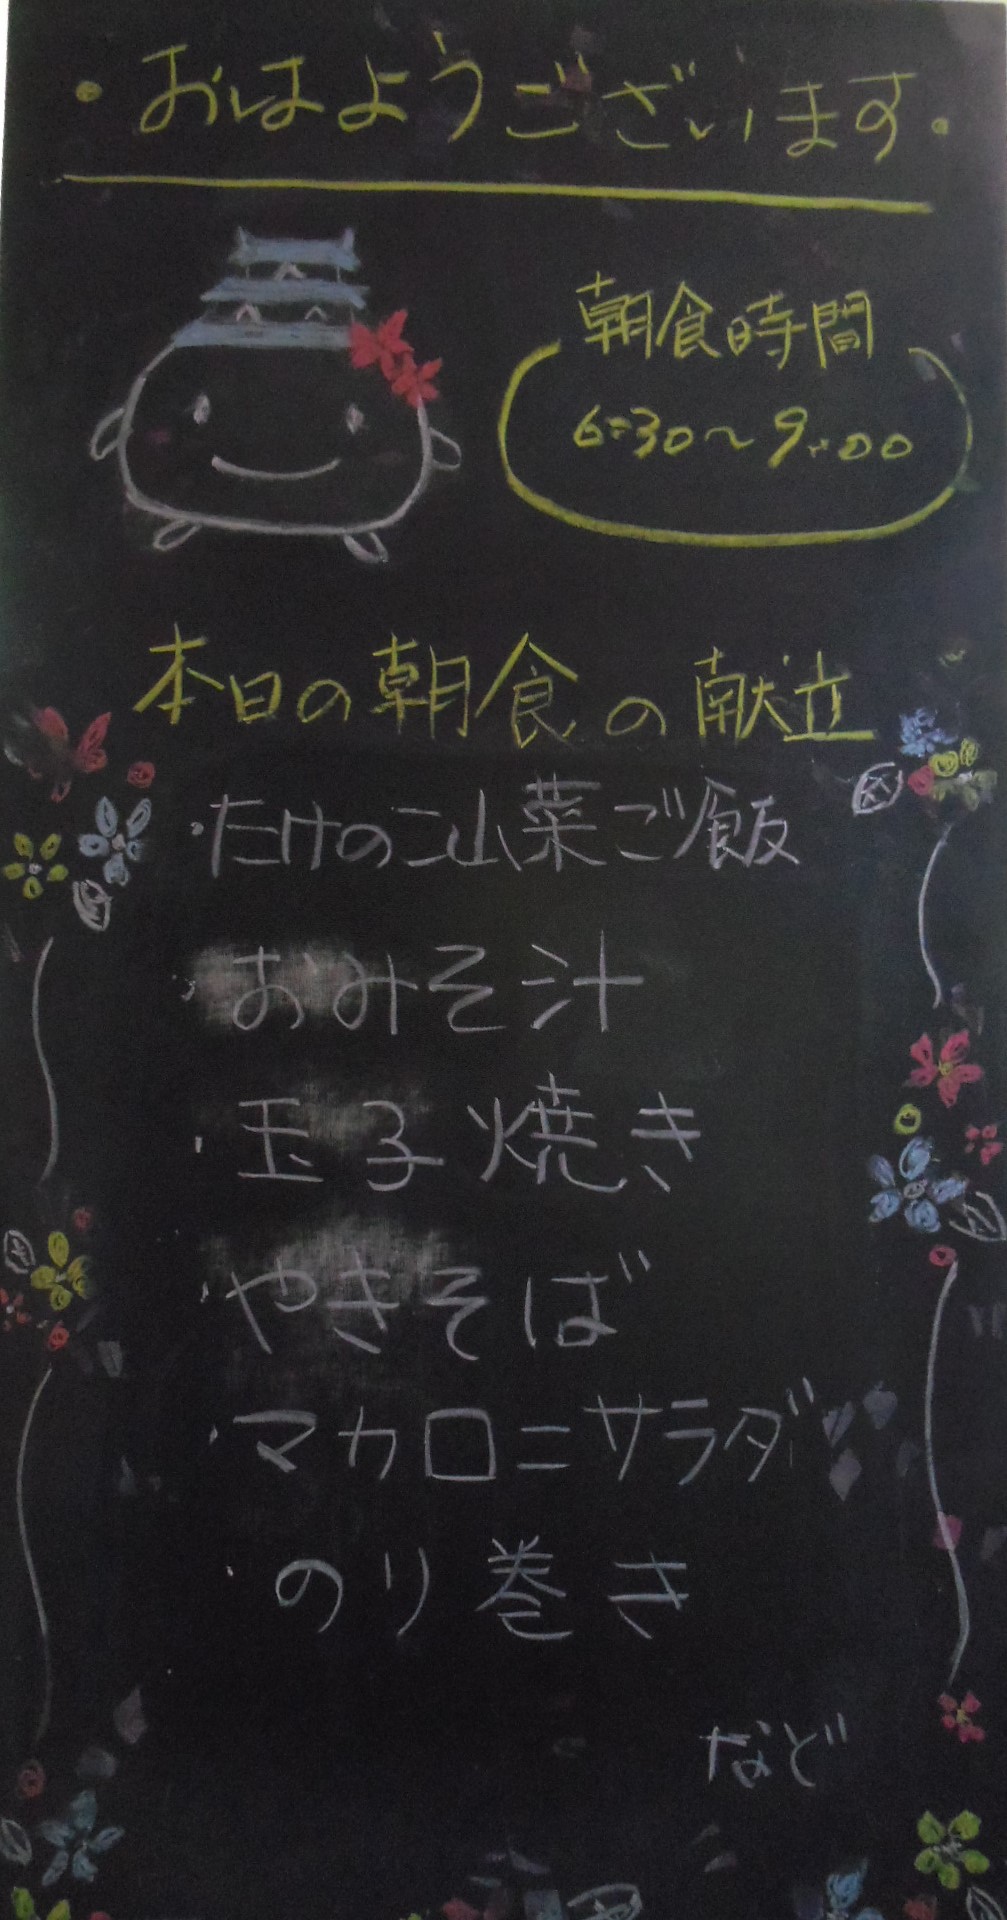 ・おはようございます・
朝食時間
6:30～9:00
本日の朝食の献立
・たけのこ山菜ご飯
・おみそ汁
・玉子焼き
・やきそば
・マカロニサラダ
・のり巻き
など